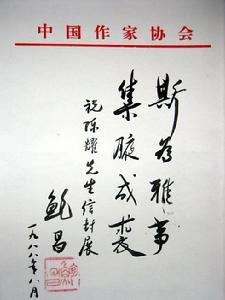 中国作家协会
斯为雅事
集腋成裘
祝陈耀先生信封展
鲍昌
一九八八年八月